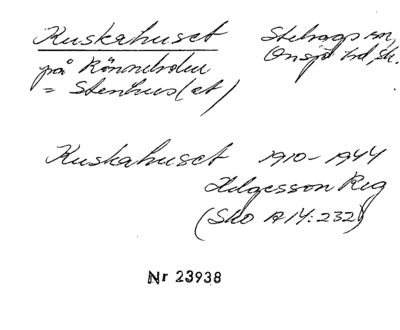 Kuskahuset Stehags sn,
på Rönneholm Onsjö hd, Sk.
= Stenhus(et)
Kuskahuset 1910-1944
Helgesson Reg
(Sko A14:232)
Nr 23938